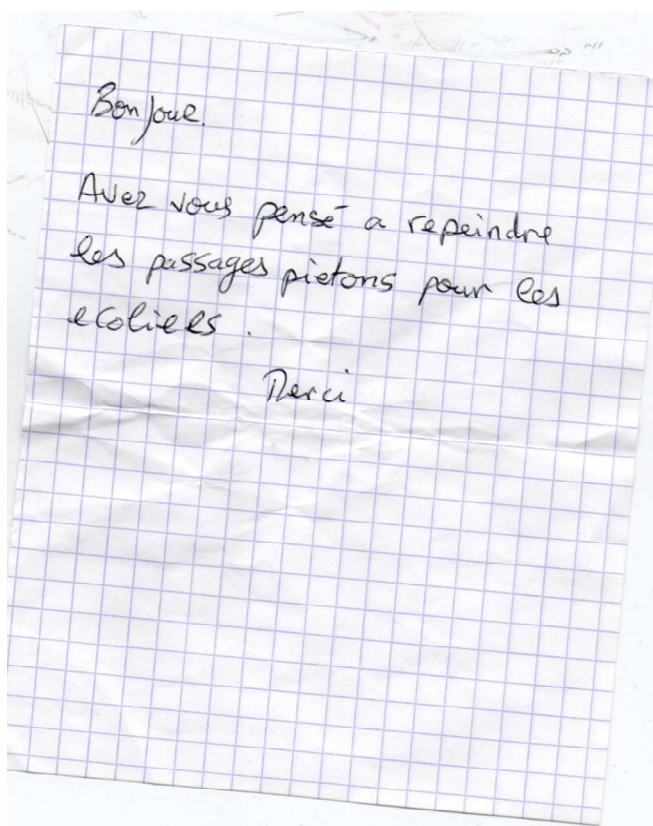 Bonjour.
Avez vous pensé a repeindre
les passages pietons pour les
ecoliers.
Merci